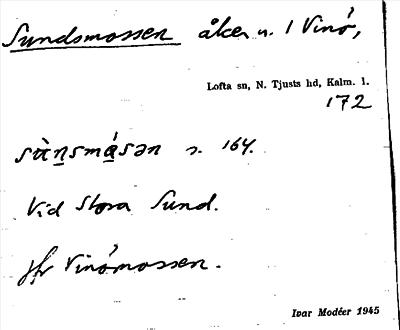 Sundsmossen åker n. 1 Vinö,
Lofta sn, N. Tjusts hd, Kalm. l.
172
sùn̲smá̲sən s. 164.
Vid Stora Sund.
Jfr Vinömossen.
Ivar Modéer 1945